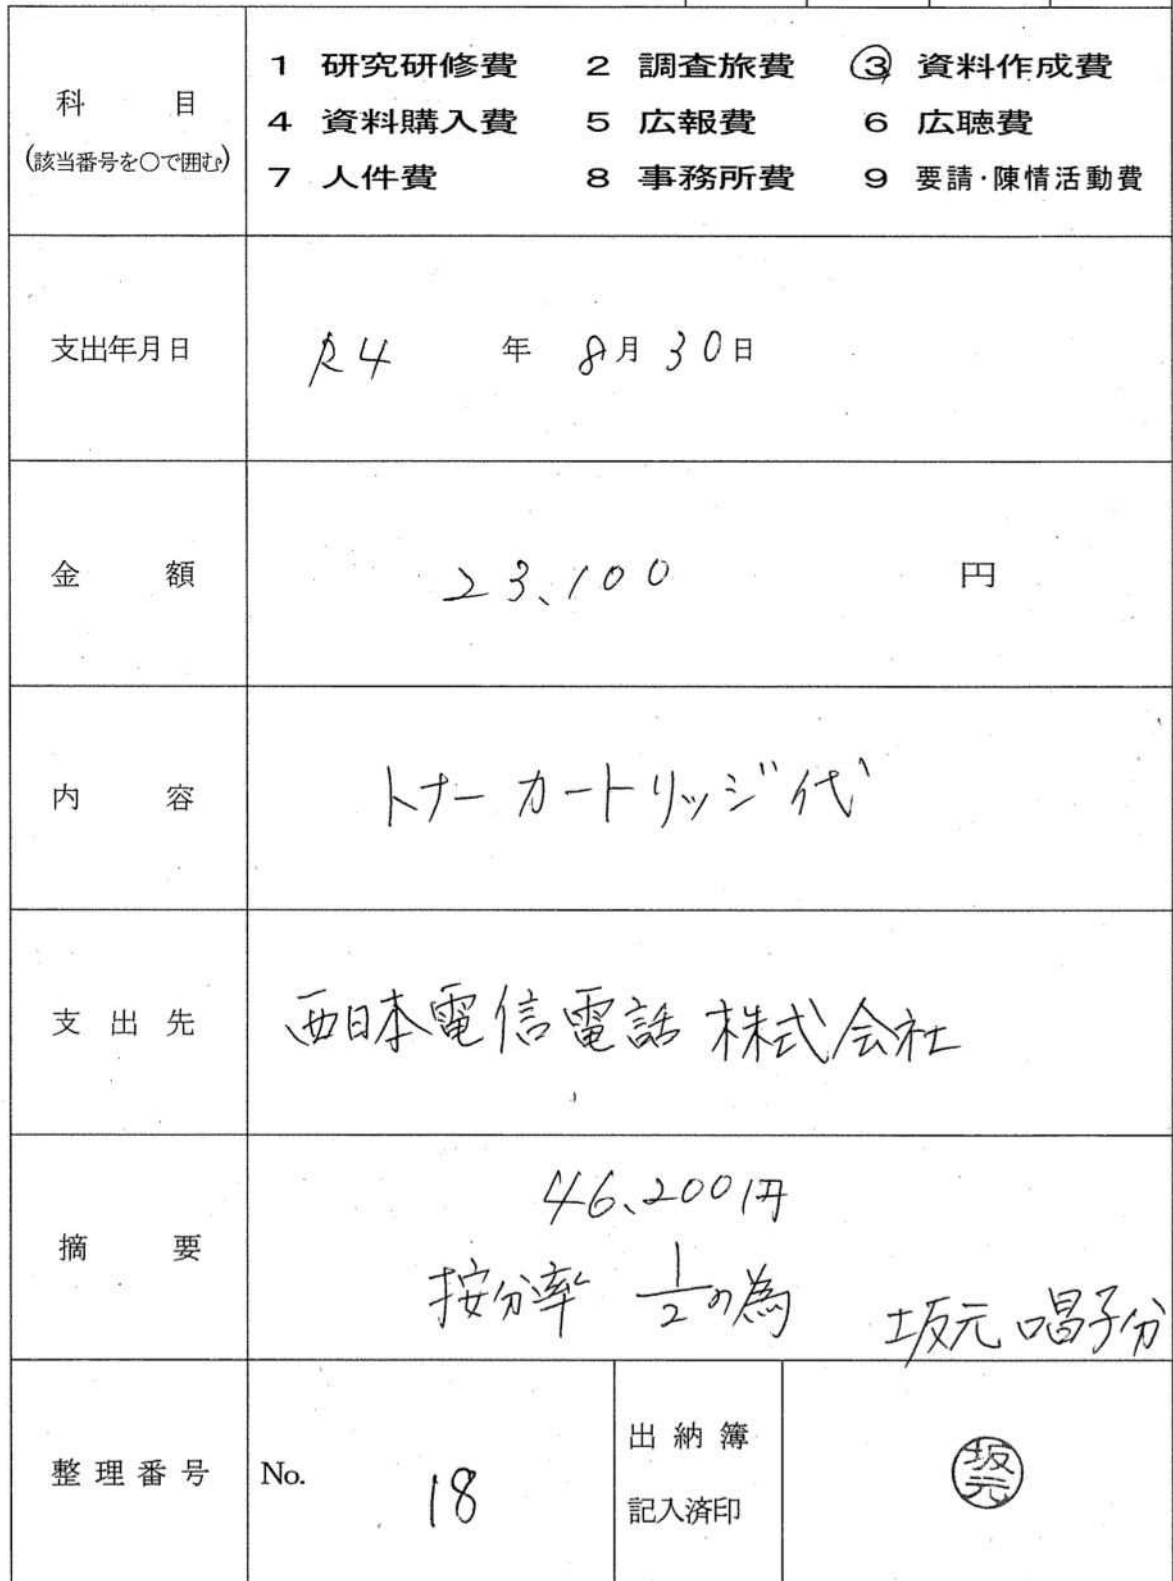 科 目
(該当番号を○で囲む)
1 研究研修費 2 調査旅費 ③ 資料作成費
4 資料購入費 5 広報費 6 広聴費
7 人件費 8 事務所費 9 要請・陳情活動費
支出年月日 R4 年 8月30日
金 額 23、100 円
内 容 トナーカートリッジ代
支 出 先 西日本電信電話 株式会社
摘 要
46、200円
按分率 1/2の為 坂元 唱子分
整 理 番 号 No. 18
出 納 簿
記入済印
坂元